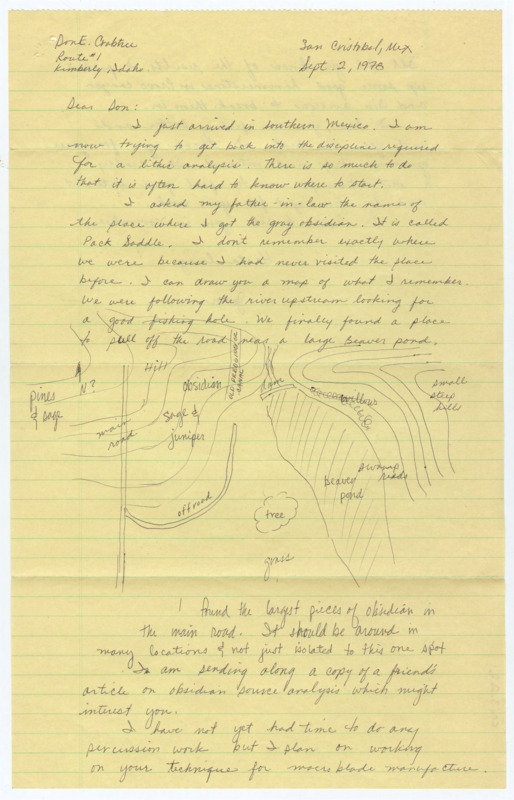 Don E. Crabtree
Route #1
Kimberly, Idaho
San Cristobal, Mex
Sept. 2, 1978
Dear Don:
I just arrived in southern Mexico. I am
now trying to get back into the discipline required
for a lithic analysis. There is so much to do
that it is often hard to know where to start.
I asked my father-in-law the name of
the place where I got the gray obsidian. It is called
Pack Saddle. I don't remember exactly where
we were because I had never visited the place
before. I can draw you a map of what I remember.
We were following the river upstream looking for
a good fishing hole. We finally found a place
to pull off the road near a large Beaver pond.
N?
Hill
pines
& sage
main
road
obsidian
sage &
juniper
canal
dam
willows
small
steep
hills
off road
tree
Beaver
pond
swamp
reeds
grass
I found the largest pieces of obsidian in
the main road. It should be around in
many locations & not just isolated to this one spot
I am sending along a copy of a friend's
article on obsidian source analysis which might
interest you.
I have not yet had time to do any
percussion work but I plan on working
on your technique for macroblade manufacture.